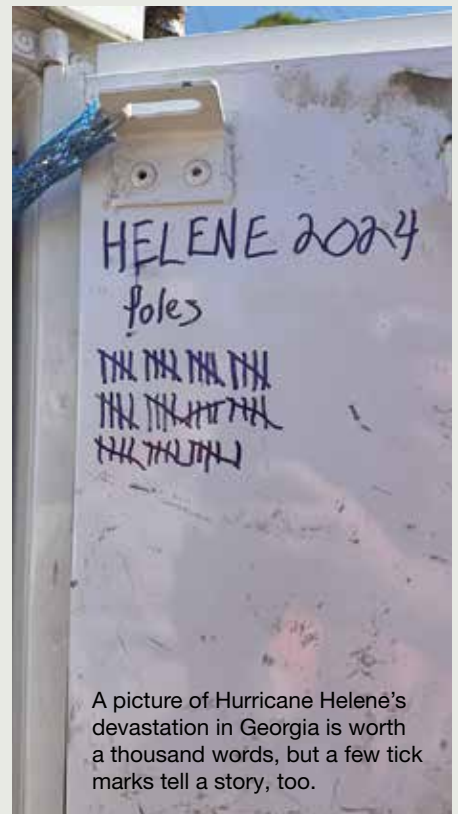 HELENE 2024
Poles
A picture of Hurricane Helene's
devastation in Georgia is worth
a thousand words, but a few tick
marks tell a story, too.